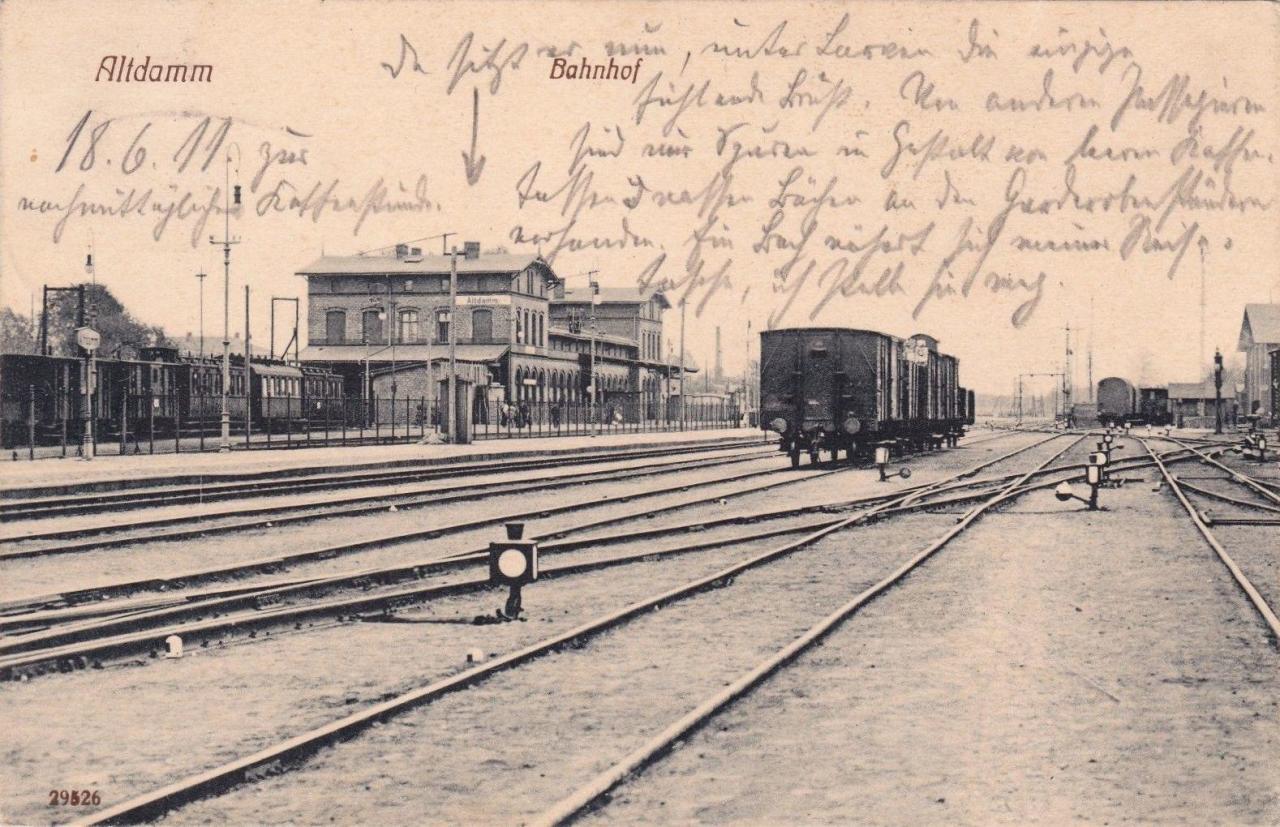 Altdamm
Bahnhof
18.6.11 zur
nachmittäglichen Kaffeestunde.
da sitzt er nun, unter Larven die einzige
fühlende Brust. Von anderen Passagieren
sind nur Spuren in Gestalt von leeren Kaffee-
tassen & nassen Bächen an den Garderobenständern
vorhanden. Ein Bach nähert sich meiner Reise-
tasche, ich stelle sie weg.
Altdamm
29526